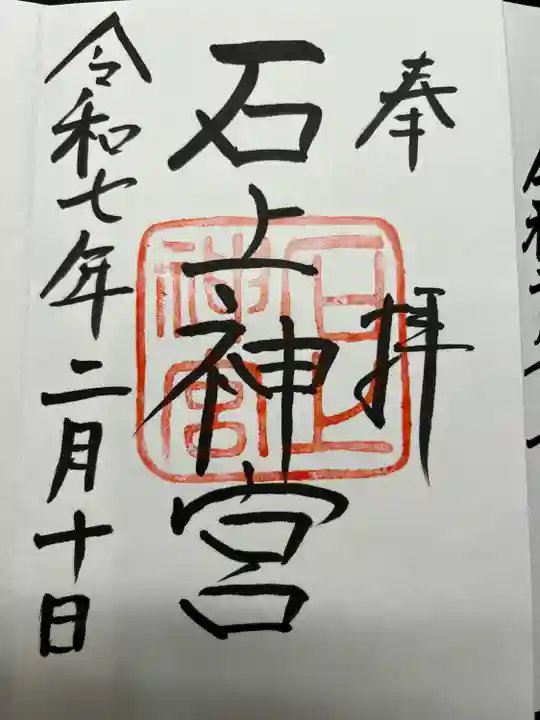 奉拝
石上神宮
令和七年二月十日
石上
神宮